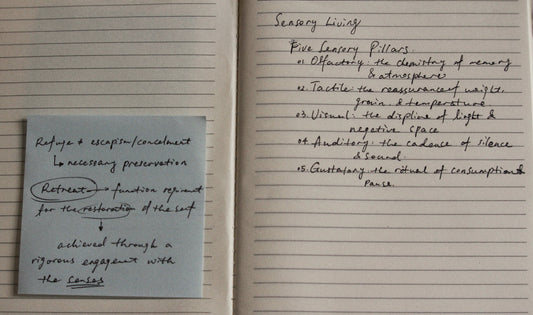 Refuge ≠ escapism/concealment
↳ necessary preservation
Retreat → function
for the restoration of the self
↓
achieved through a
rigorous engagement with
the senses
Sensory Living
Five Sensory Pillars.
01. Olfactory: the chemistry of memory
& atmosphere
02. Tactile: the reassurance of weight,
grain & temperature
03. Visual: the displine of light &
negative space
04. Auditory: the cadence of silence
& sound.
05. Gustatory: the ritual of consumption &
pause.